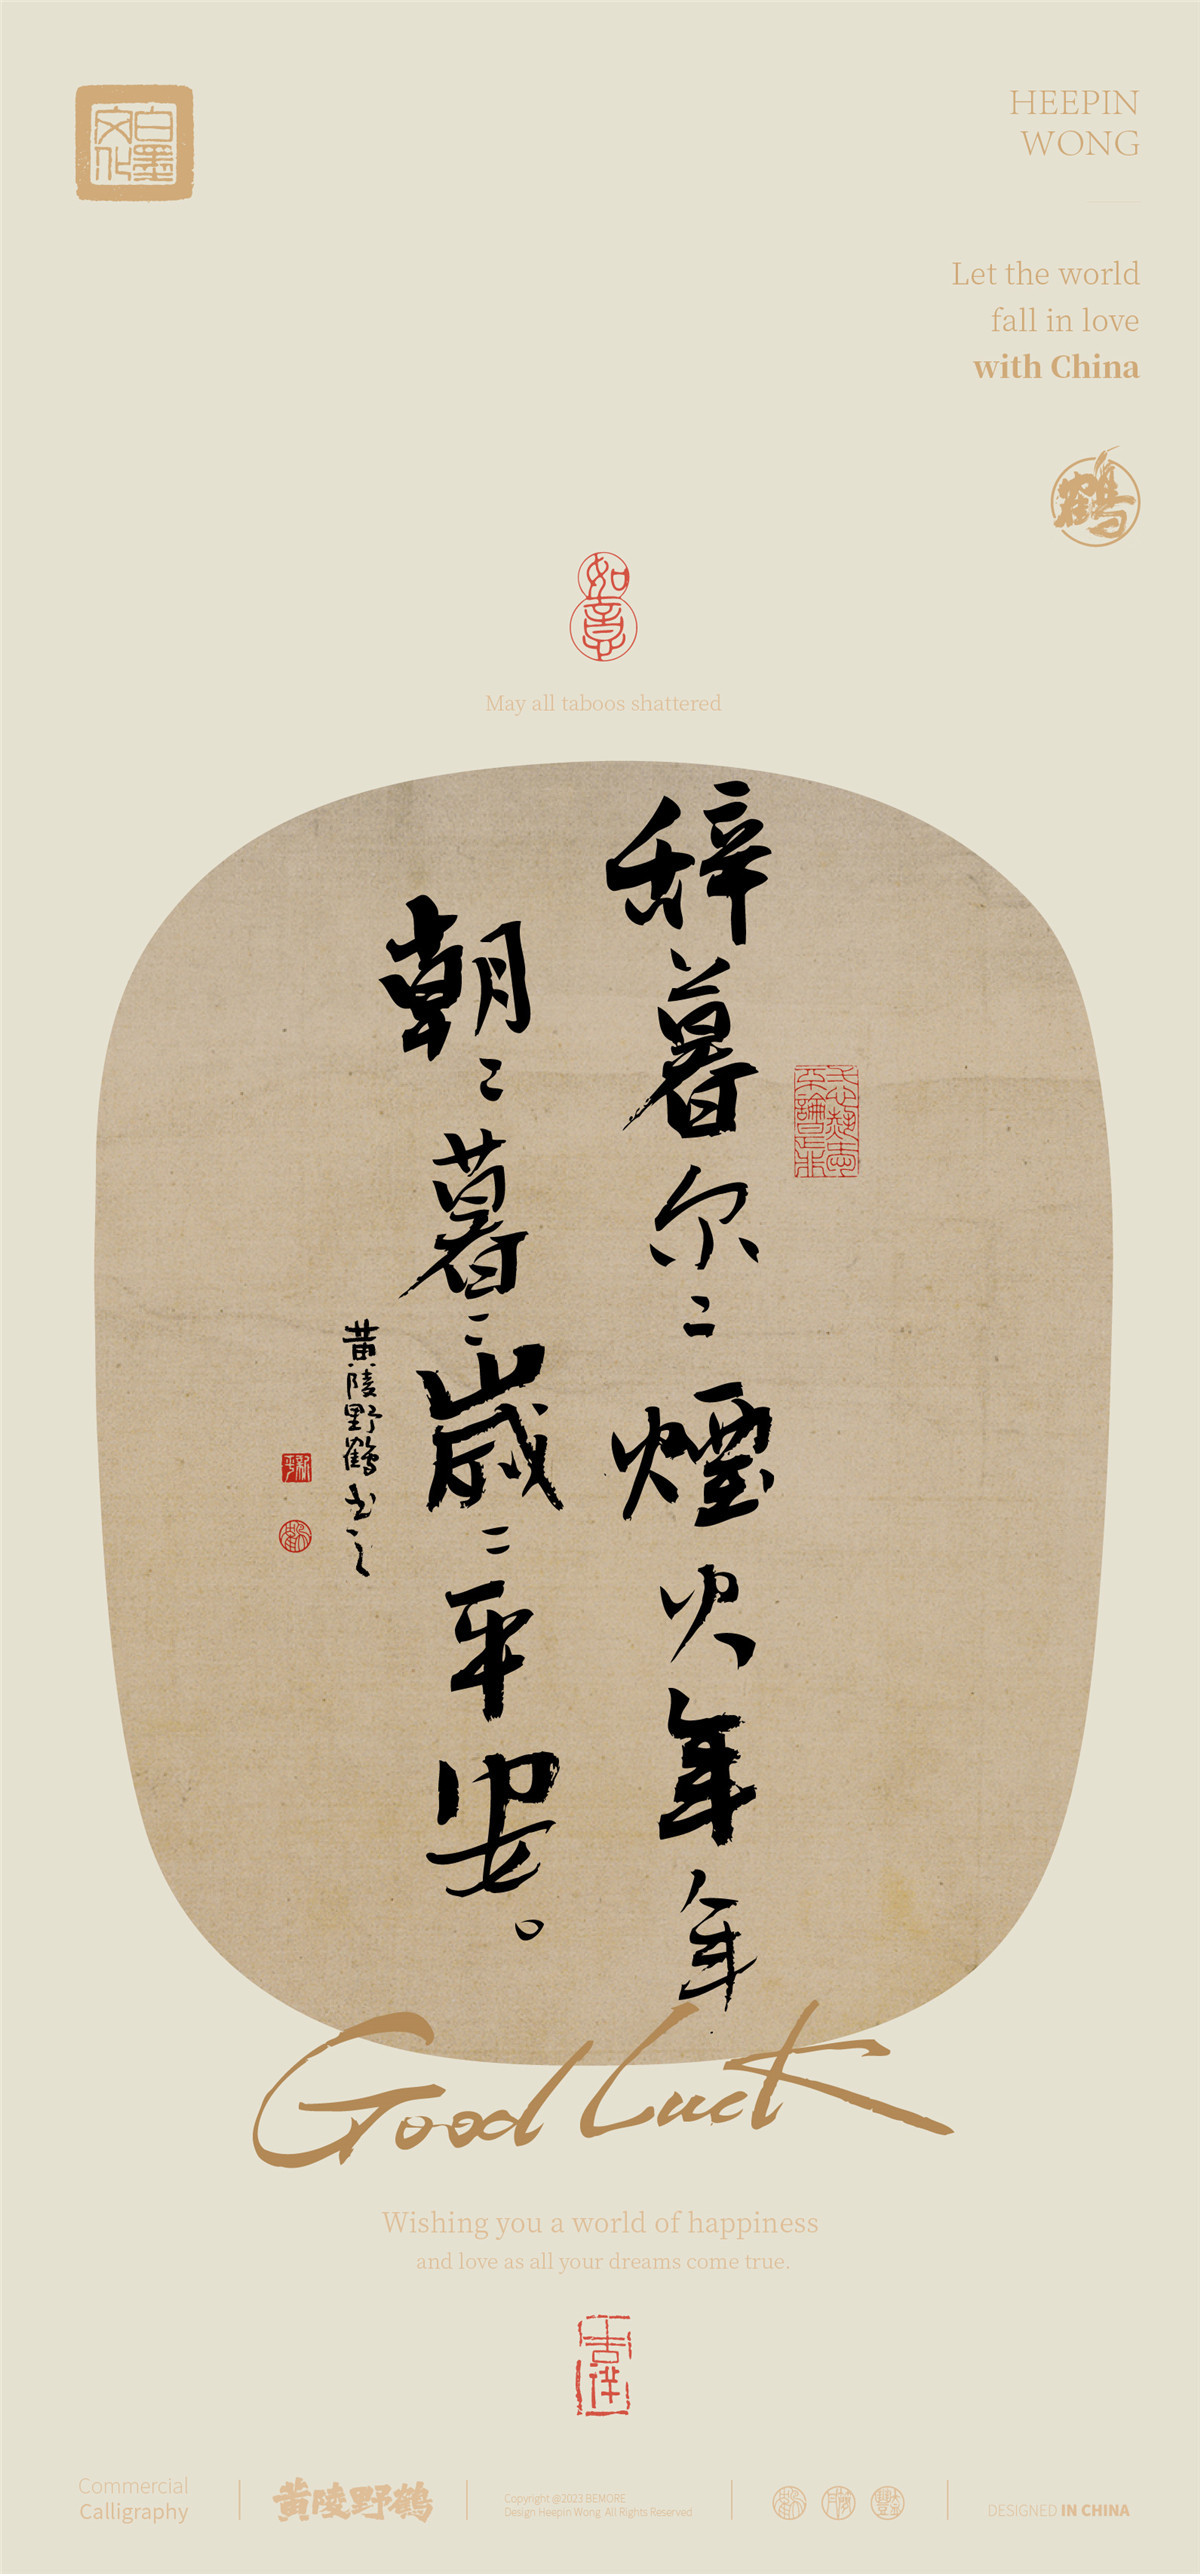 白墨文化
HEEPIN
WONG
Let the world
fall in love
with China
鶴
如意
May all taboos shattered
辞暮尔二煙火年年
朝二暮二歳二平安。
黄陵野鶴书之
Good Luck
Wishing you a world of happiness
and love as all your dreams come true.
吉祥
Commercial
Calligraphy
黄陵野鶴
Copyright @2023 BEMORE
Design Heepin Wong All Rights Reserved
DESIGNED IN CHINA